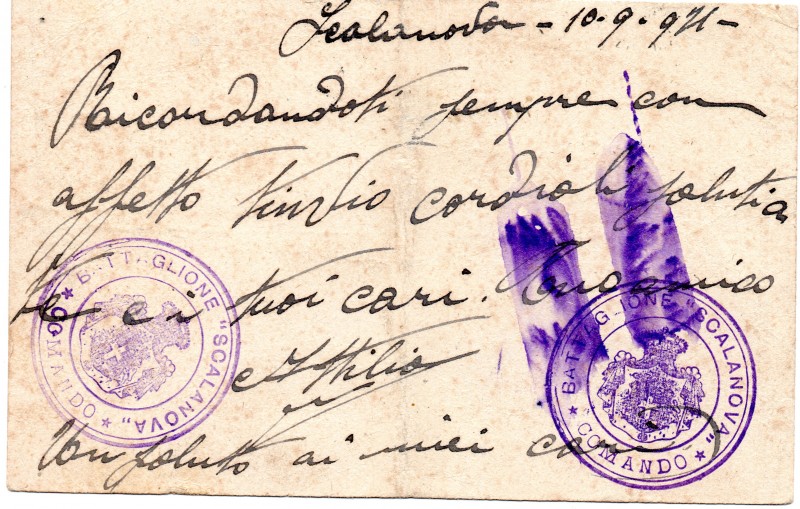 Scalanova - 10.9.921-
Ricordandoti sempre con
affetto t'invio cordiali saluti a
te e i tuoi cari. Tuo amico
Attilio
Un saluto ai miei cari
BATTAGLIONE "SCALANOVA"
* COMANDO *
BATTAGLIONE "SCALANOVA"
* COMANDO *